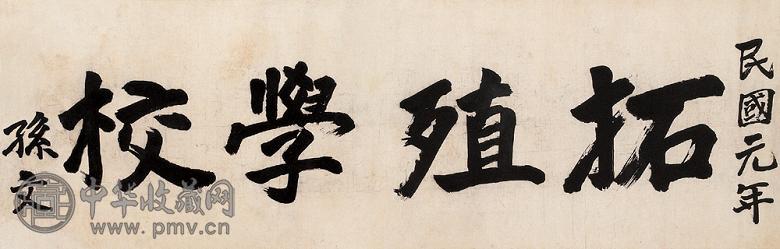 民國元年
拓殖學校
孫文
中华收藏网
www.pmv.cn